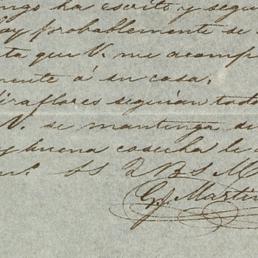 ngo ha escrito y segu
oy probablemente se
ta que V. me acomp
mente á su casa.
iraflores seguian todo
V. se mantenga de
y buena cosecha le d
SS Q B S M
Martin